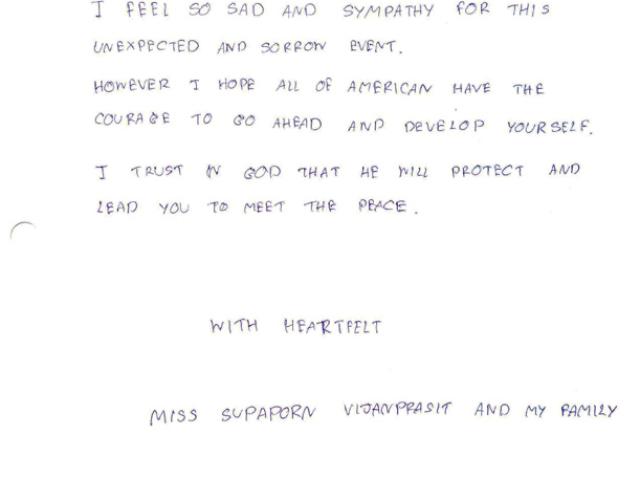 I FEEL SO SAD AND SYMPATHY FOR THIS
UNEXPECTED AND SORROW EVENT.
HOWEVER I HOPE ALL OF AMERICAN HAVE THE
COURAGE TO GO AHEAD AND DEVELOP YOURSELF.
I TRUST IN GOD THAT HE WILL PROTECT AND
LEAD YOU TO MEET THE PEACE.
WITH HEARTFELT
MISS SUPAPORN VIJANPRASIT AND MY FAMILY